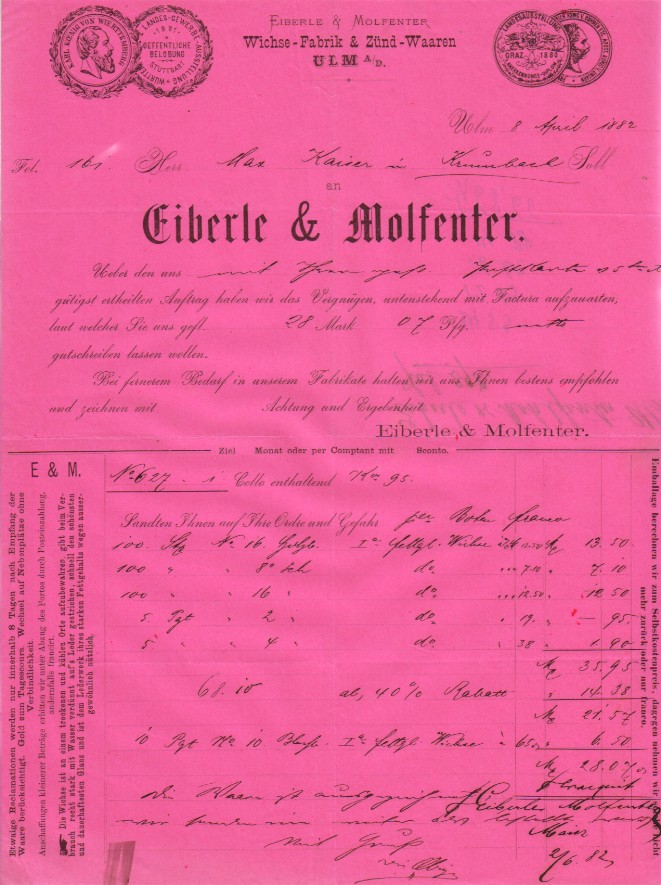 KARL KÖNIG VON WÜRTTEMBERG
LANDES-GEWERBE-AUSSTELLUNG WÜRTTEMBERG
1881
OEFFENTLICHE
BELOBUNG
STUTTGART
EIBERLE & MOLFENTER
Wichse-Fabrik & Zünd-Waaren
ULM A/D.
LANDESAUSSTELLUNG
GRAZ 1880
Ulm 8 April 1882
Fol. 161 Herr Max Kaiser in Krumbach Soll
an
Eiberle & Molfenter.
Ueber den uns mit Ihrer gesch. Postkarte
gütigst ertheilten Auftrag haben wir das Vergnügen, untenstehend mit Factura aufzuwarten,
laut welcher Sie uns gefl. 28 Mark 07 Pfg. netto
gutschreiben lassen wollen.
Bei fernerem Bedarf in unserem Fabrikate halten wir uns Ihnen bestens empfohlen
und zeichnen mit Achtung und Ergebenheit
Eiberle & Molfenter.
Ziel Monat oder per Comptant mit Sconto.
E & M.
No 627. 1 Collo enthaltend Ko 95.
Sandten Ihnen auf Ihre Ordre und Gefahr per Bote franco
100 No 16 Ia fettgl. Wichse à 13.50 13.50
100 " " 8 do " 7.10 7.10
100 " " 16 " do " 12.50 12.50
5 Pgt " 2 " do " 19. — 95.
5 " " 4 " do " 38 1.90
M 35.95
68.10 ab, 40% Rabatt " 14.38
M 21.57
10 Pgt No 10 Ia fettgl. Wichse à 65 " 6.50
M 28.07
Die Waare ist
Eiberle Molfenter
wir senden
Mit Gruß
2/6. 82
Etwaige Reclamationen werden nur innerhalb 8 Tagen nach Empfang der
Waare berücksichtigt. Geld zum Tagescours. Wechsel auf Nebenplätze ohne
Verbindlichkeit.
Anschaffungen kleinerer Beträge erbitten wir unter Abzug des Portos durch Posteinzahlung,
andernfalls francirt.
Die Wichse ist an einem trockenen und kühlen Orte aufzubewahren, gibt beim Ver-
brauch recht stark mit Wasser verdünnt auf's Leder gestrichen, schnell den schönsten
und dauerhaftesten Glanz und ist dem Lederwerk ihres starken Fettgehalts wegen ausser-
gewöhnlich nützlich.
Emballage berechnen wir zum Selbstkostenpreis, dagegen nehmen wir nicht
mehr zurück oder nur franco.